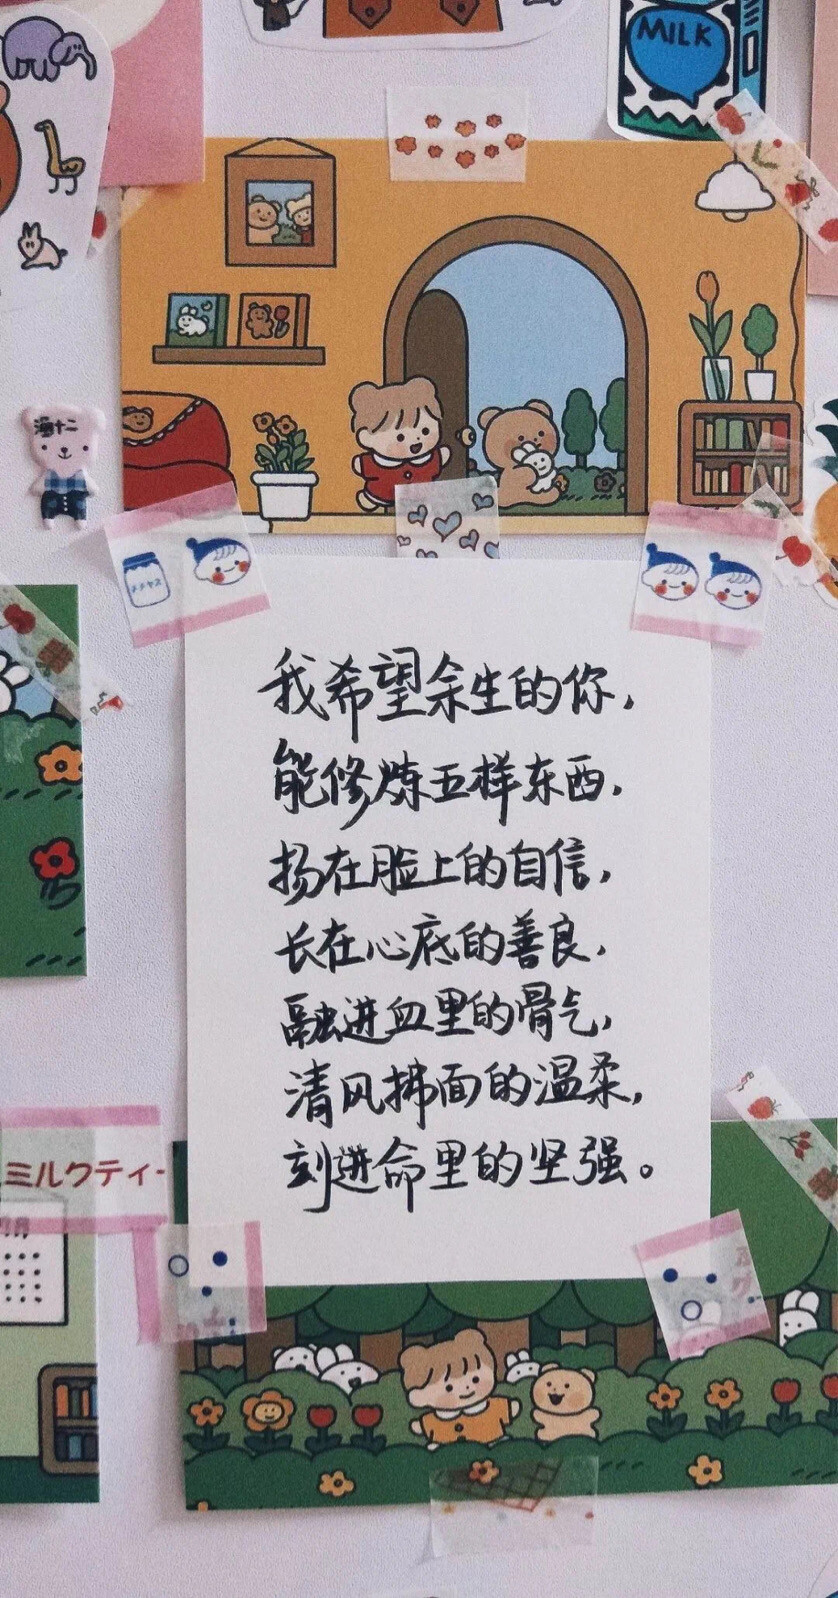 MILK
海十二
我希望余生的你,
能修炼五样东西.
扬在脸上的自信,
长在心底的善良.
融进血里的骨气,
清风拂面的温柔,
刻进命里的坚强。
ミルクティー